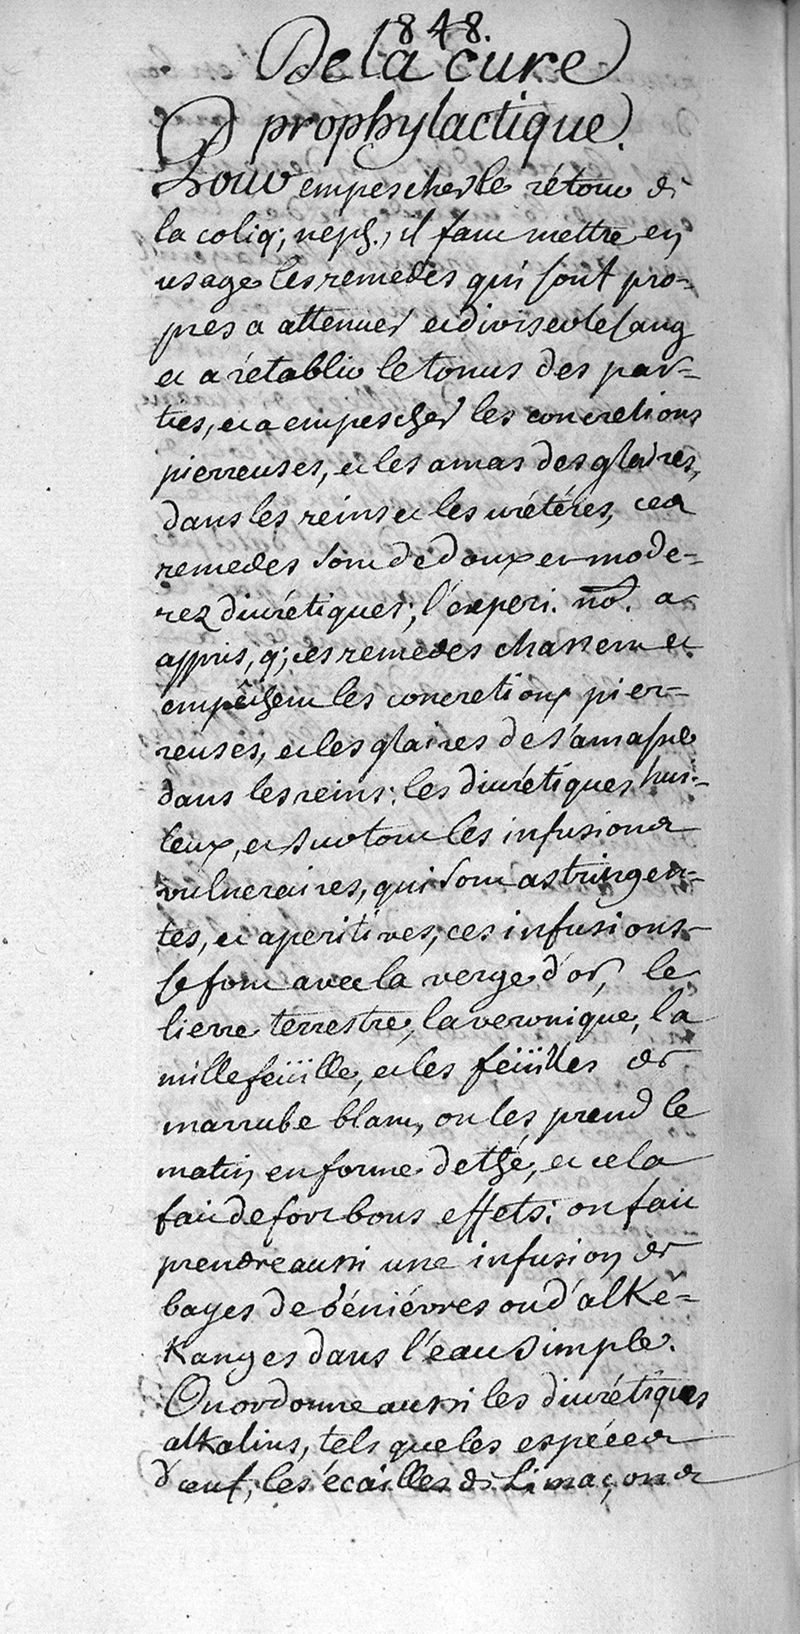 848.
De la cure
prophylactique.
Pour empescher le rétour de
la coliq; neph., il faut mettre en
usage les remedes qui sont pro-
pres a attenuer et diviser le sang
et a rétablir le tonus des par-
ties, et a empescher les concretions
pierreuses, et les amas des glaires,
dans les reins et les urétéres, ces
remedes sont de doux et mode-
rez diurétiques; l'experi. no. a
appris, q; ces remedes chassent et
empêchent les concretions pier-
reuses, et les glaires de s'amasser
dans les reins: les diurétiques hui-
leux, et surtout les infusions
vulneraires, qui sont astringen-
tes, et aperitives, ces infusions
se font avec la verge d'or, le
lierre terrestre, la veronique, la
millefeüille, et les feüilles de
marrube blanc, on les prend le
matin en forme de thé, et cela
fait de fort bons effets: on fait
prendre aussi une infusion de
bayes de géniévres ou d'alké-
kanges dans l'eau simple.
On ordonne aussi les diurétiques
alkalins, tels que les
d'oeuf, les écailles de Limaçons